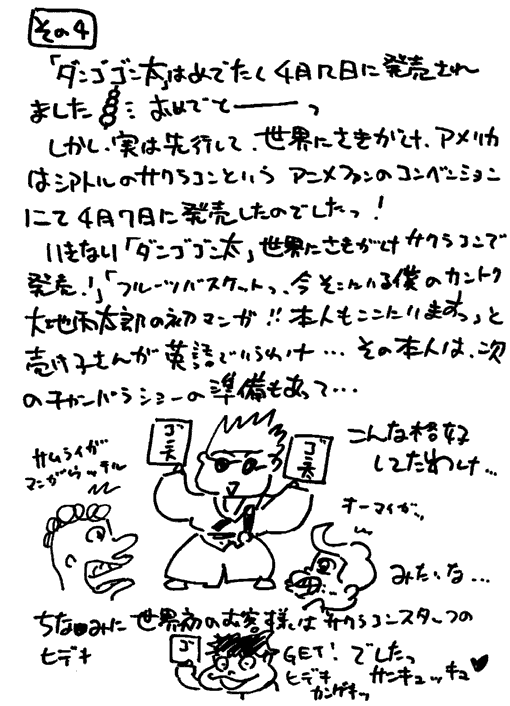 その4
「ダンゴゴン太」はめでたく4月12日に発売され
ました…おめでとーーっ
しかし、実は先行して、世界にさきがけ、アメリカ
はシアトルのサクラコンという アニメファンのコンベンション
にて4月7日に発売したのでしたっ!
いきなり「ダンゴゴン太」世界にさきがけサクラコンで
発売!」「フルーツバスケットっ、今そこにいる僕のカントク
大地丙太郎の初マンガ!!本人もここにいますっ」と
売り子さんが英語でいうわけ…その本人は、次
のチャンバラショーの準備もあって…
こんな格好
してたわけ…
サムライが
マンガウッテル
ゴン太
ゴン太
オーマイガッ
みたいな…
ちなみに世界初のお客様はサクラコンスタッフの
ヒデキ
ゴ
GET!でしたっ
ヒデキ
カンゲキッ
サンキュッキュ♥